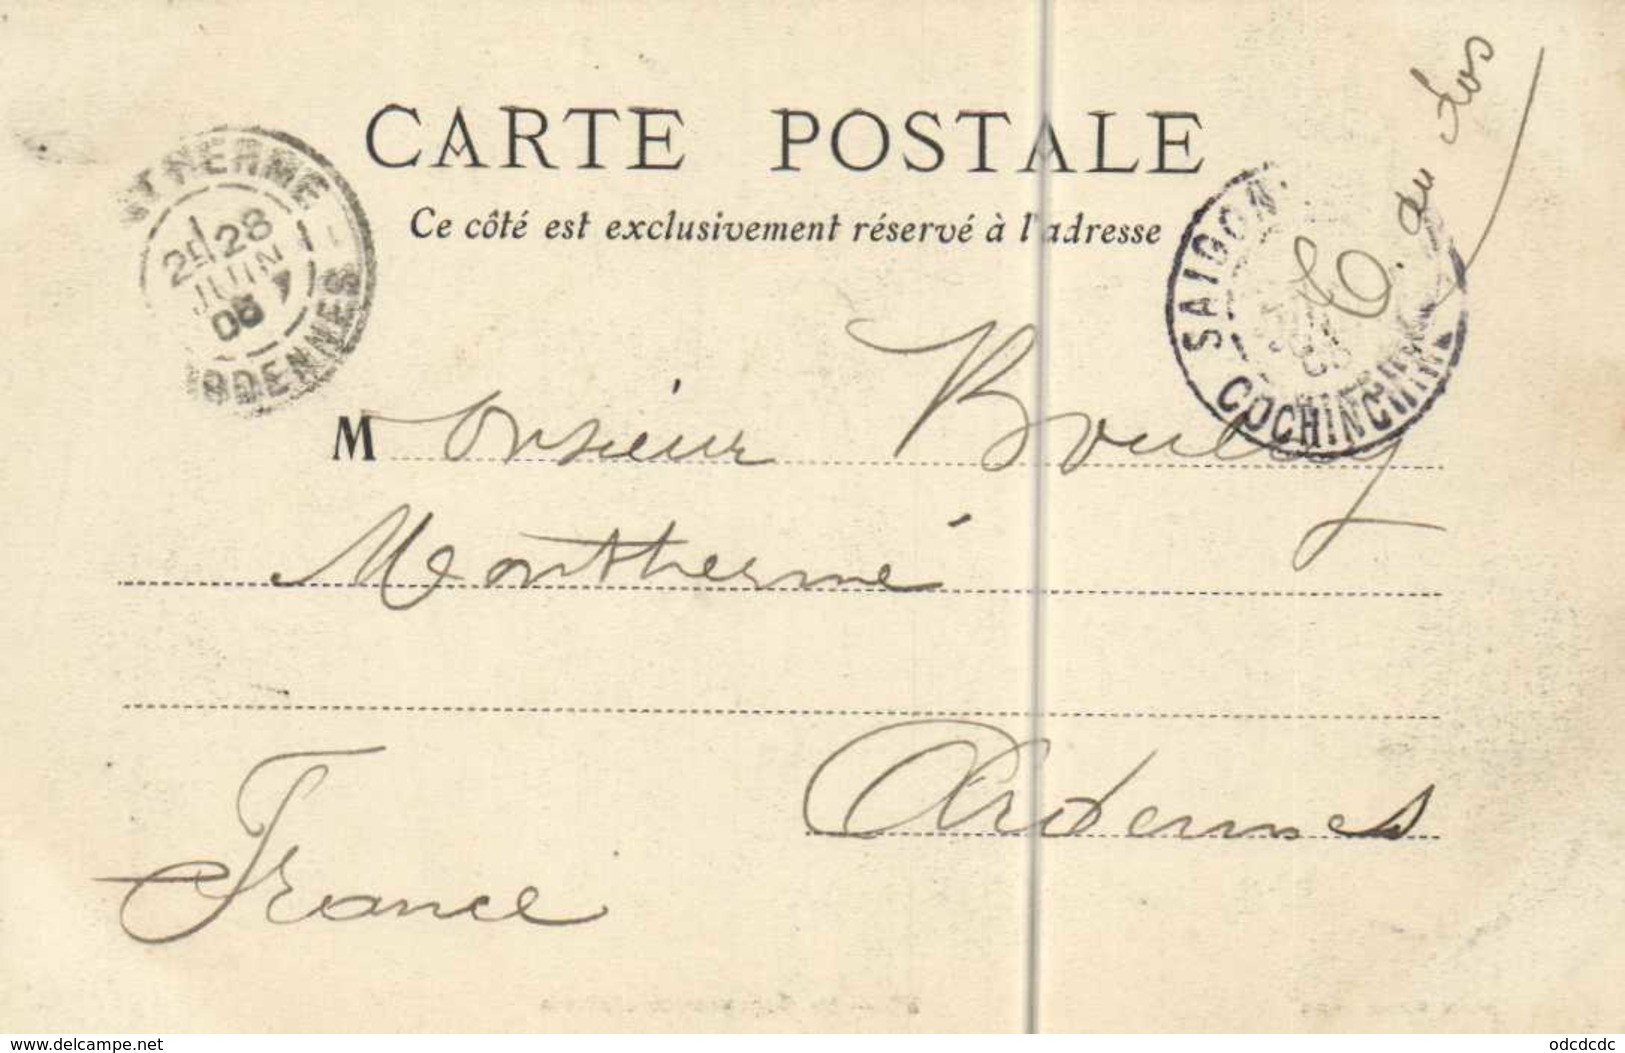 CARTE POSTALE
Ce côté est exclusivement réservé à l'adresse
THERMÉ
2E 28
JUIN
06
ARDENNES
SAIGON
COCHINCHINE
du
Monsieur
Monthermé
Ardennes
France
www.delcampe.net
odcdcdc